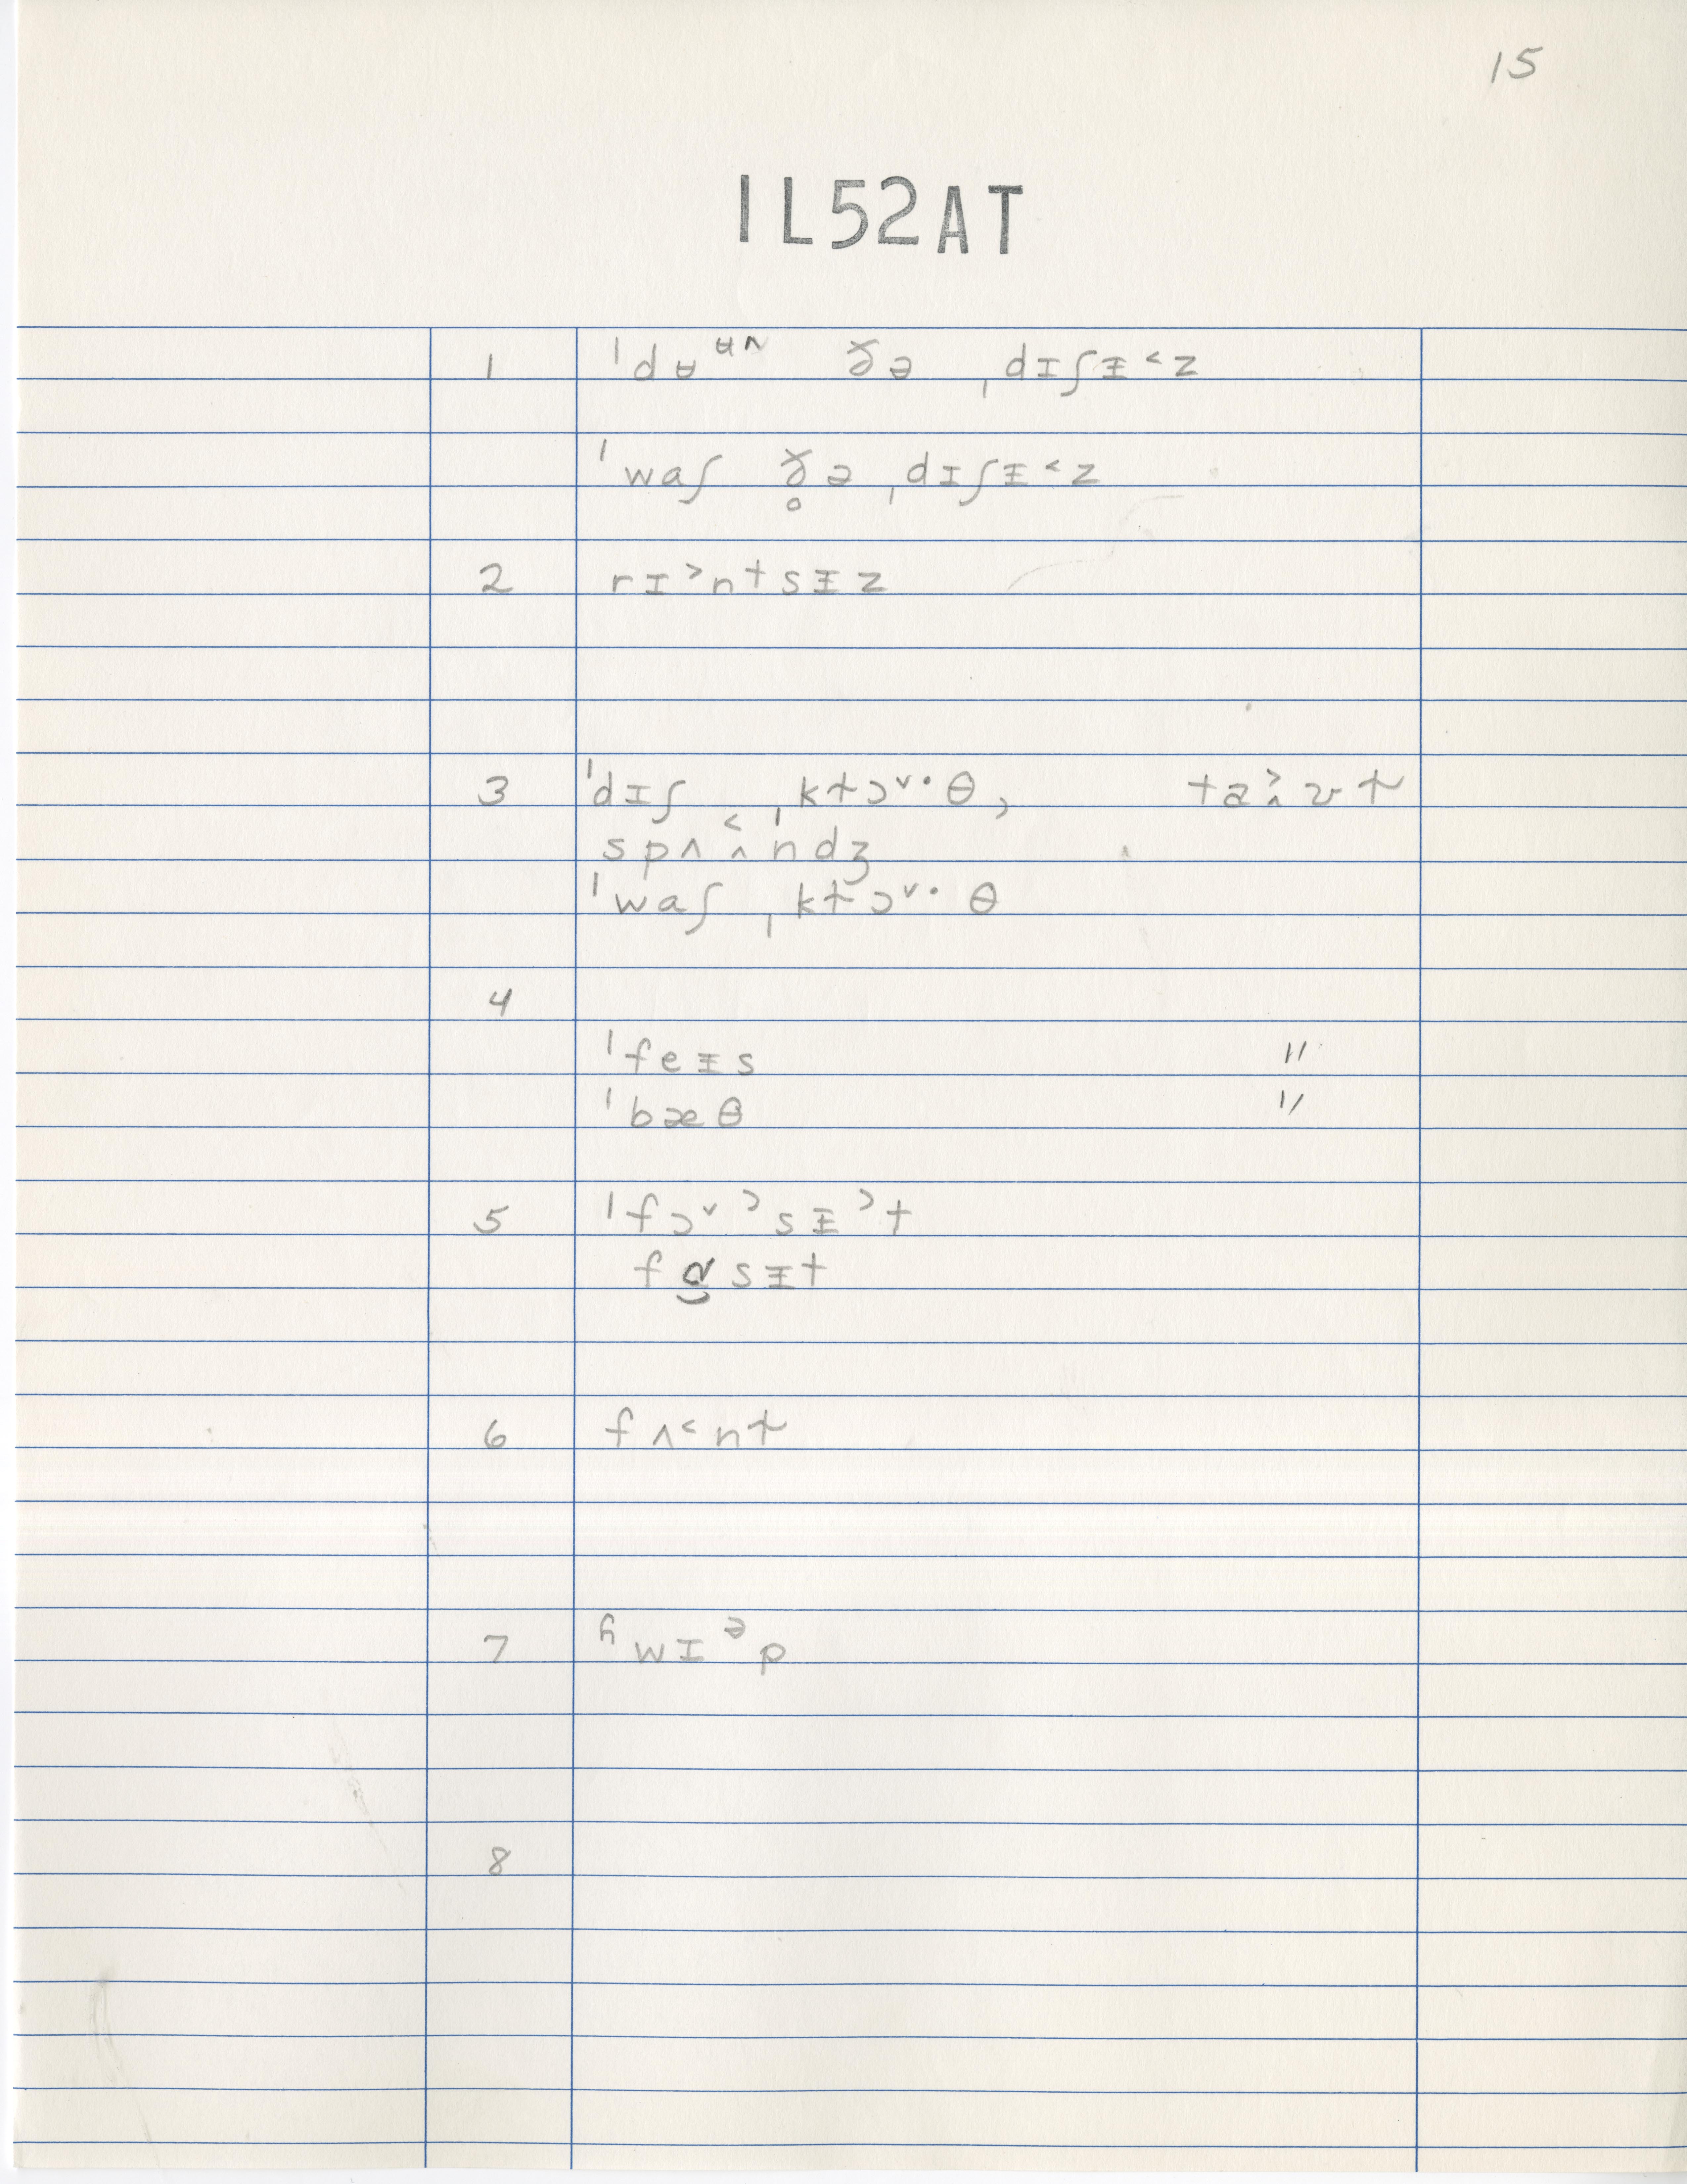 15
1L52AT
1 ˈdʉᶶ̵ˆ ð̆ə ˌdɪʃᵻ˂z
ˈwaʃ ð̥̆ə ˌdɪʃᵻ˂z
2 rɪ˃ntsᵻz
3 ˈdɪʃ ˌkɫɔ˅·θ, taʊɫ
spʌndʒ
ˈwaʃ ˌkɫɔ˅·θ
4
ˈfeᵻs "
ˈbæθ "
5 ˈfɔ˅˃sᵻ˃t
fɑsᵻt
6 fʌ˂nɫ
7 ʱwɪᵊp
8